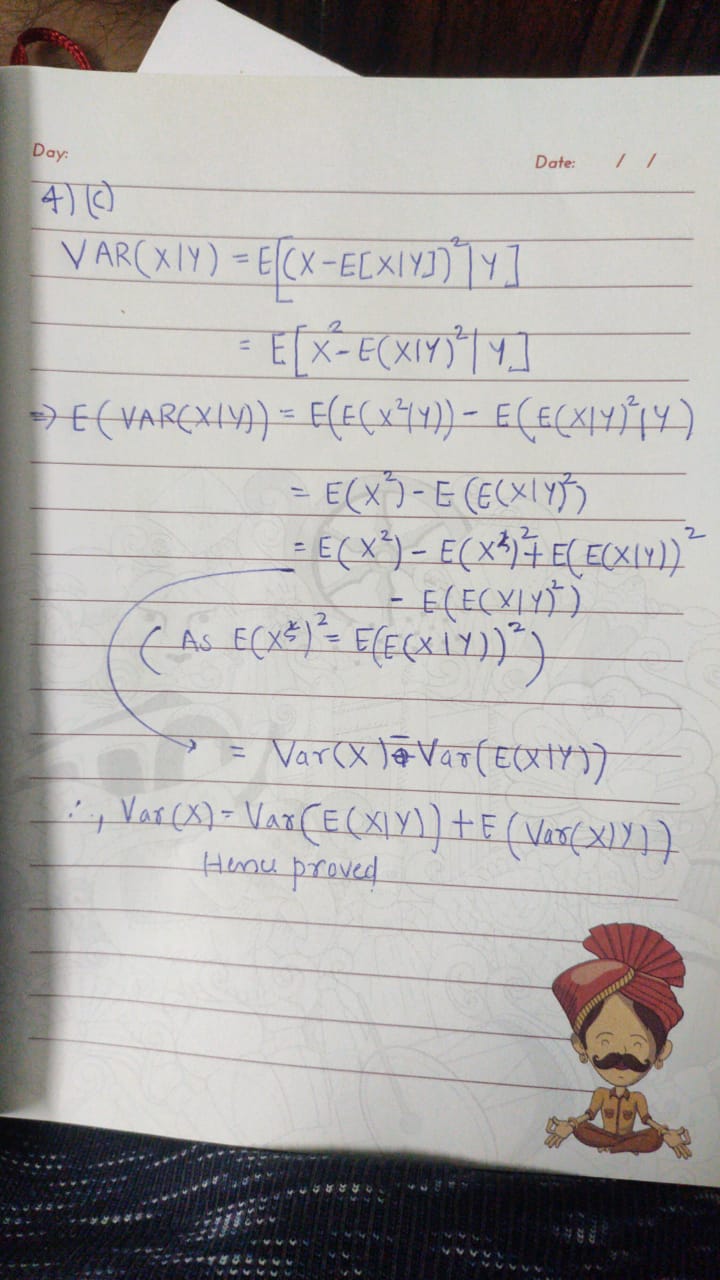 Day:
Date: / /
4) (c)
VAR(X|Y) = E[(X-E[X|Y])²|Y]
= E[X²-E(X|Y)²|Y]
⇒ E(VAR(X|Y)) = E(E(X²|Y)) - E(E(X|Y)²|Y)
= E(X²) - E(E(X|Y)²)
= E(X²) - E(X)² + E(E(X|Y))²
- E(E(X|Y)²)
(As E(X)² = E(E(X|Y))²)
= Var(X) - Var(E(X|Y))
∴, Var(X) = Var(E(X|Y)) + E(Var(X|Y))
Hence proved